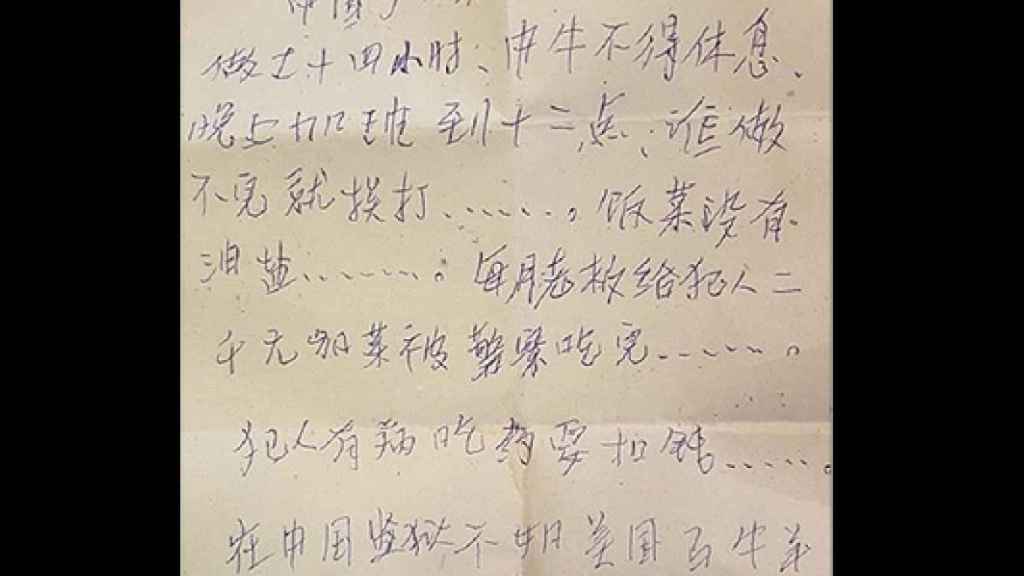 做工十四小时、中午不得休息、
晚上加班到十二点、谁做
不完就挨打……。饭菜没有
油盐……。每月老板给犯人二
千元加菜被警察吃完……。
犯人有病吃药要扣钱……。
在中国监狱不如美国马牛羊